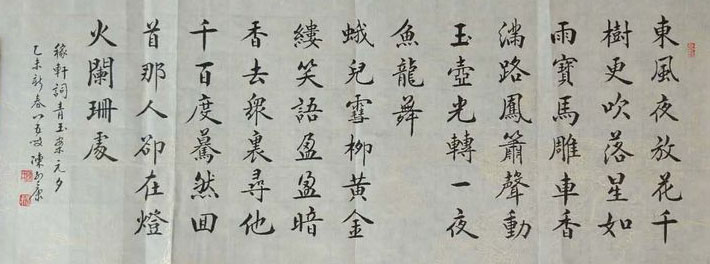 東風夜放花千
樹更吹落星如
雨寶馬雕車香
滿路鳳簫聲動
玉壺光轉一夜
魚龍舞
蛾兒雪柳黃金
縷笑語盈盈暗
香去衆裏尋他
千百度驀然囬
首那人卻在燈
火闌珊處
稼軒詞青玉案元夕
乙未新春八五叟陳